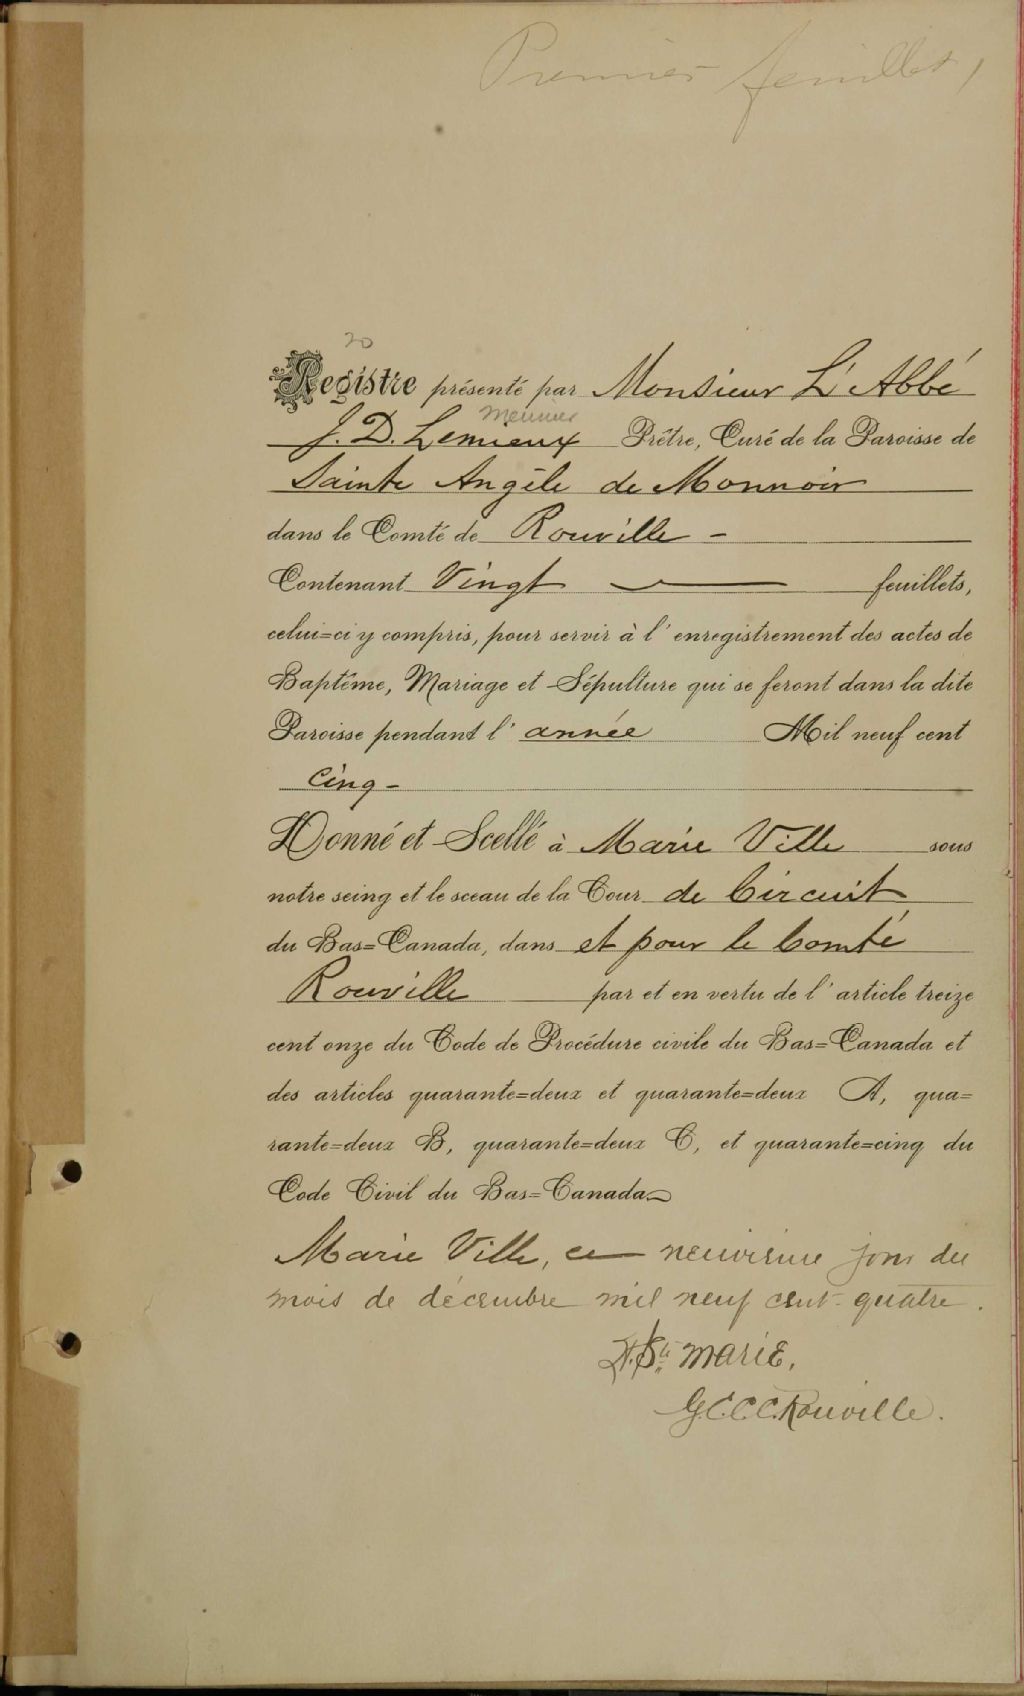 Premier feuillet,
20
Registre présenté par Monsieur L'Abbé
Meunier
J. D. Lemieux Prêtre, Curé de la Paroisse de
Sainte Angèle de Monnoir
dans le Comté de Rouville -
Contenant Vingt feuillets,
celui=ci y compris, pour servir à l'enregistrement des actes de
Baptême, Mariage et Sépulture qui se feront dans la dite
Paroisse pendant l'année Mil neuf cent
cinq -
Donné et Scellé à Marie Ville sous
notre seing et le sceau de la Cour de Circuit
du Bas=Canada, dans et pour le Comté
Rouville par et en vertu de l'article treize
cent onze du Code de Procédure civile du Bas=Canada et
des articles quarante=deux et quarante=deux A, qua=
rante=deux B, quarante=deux C, et quarante=cinq du
Code Civil du Bas=Canada
Marie Ville, ce neuvième jour du
mois de décembre mil neuf cent quatre.
Ste Marie,
G.C.C.C. Rouville.